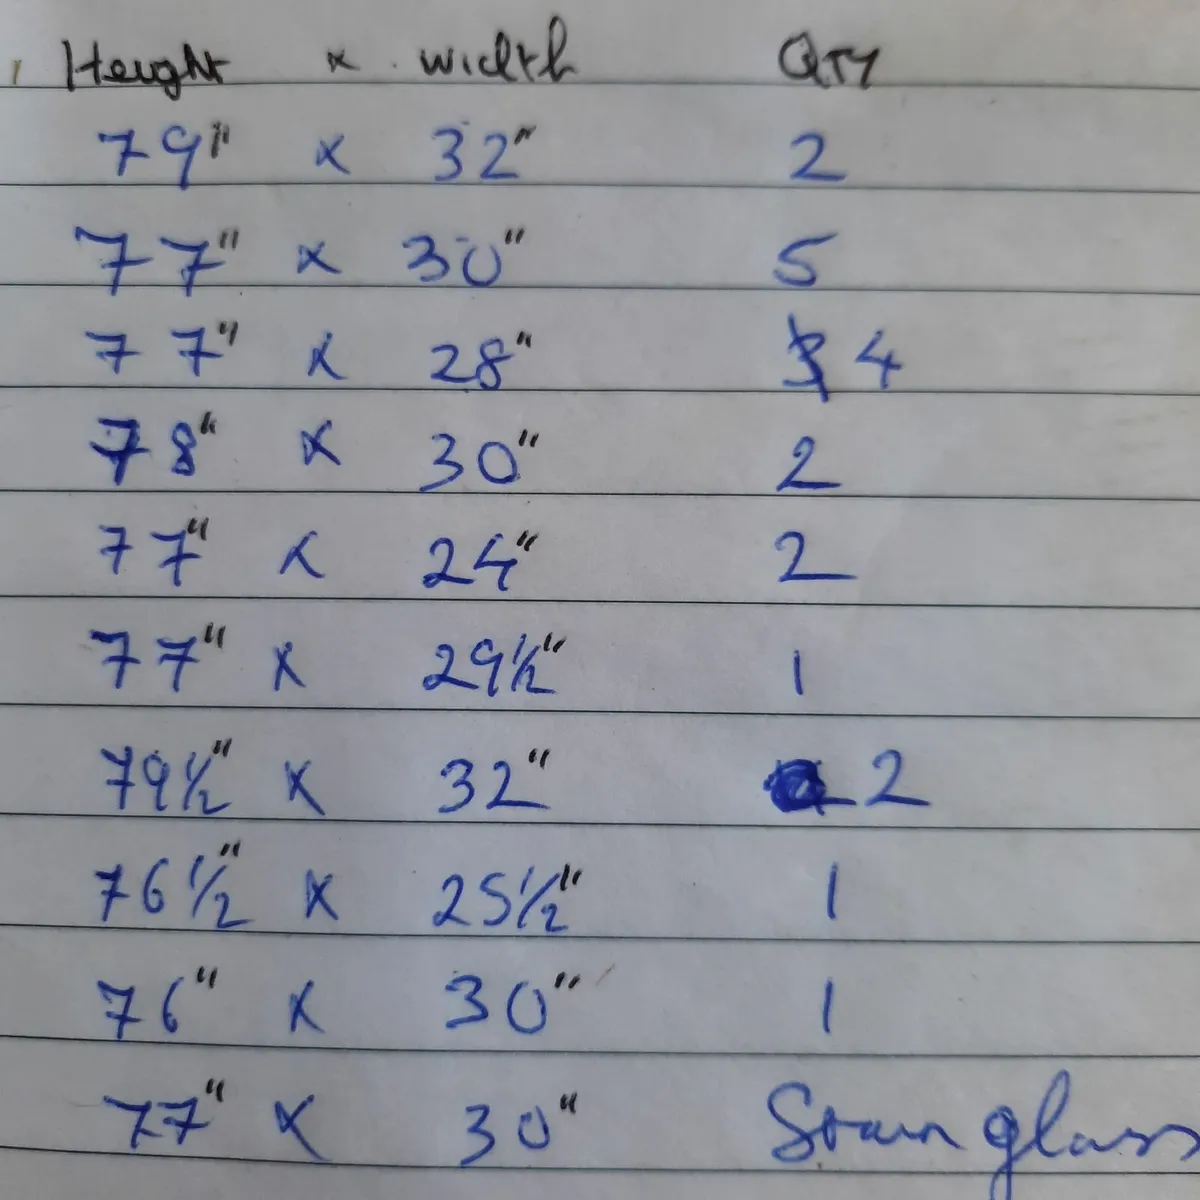 Height x width QTY
79" x 32" 2
77" x 30" 5
77" x 28" 4
78" x 30" 2
77" x 24" 2
77" x 29½" 1
79½" x 32" 2
76½" x 25½" 1
76" x 30" 1
77" x 30" Stain glass